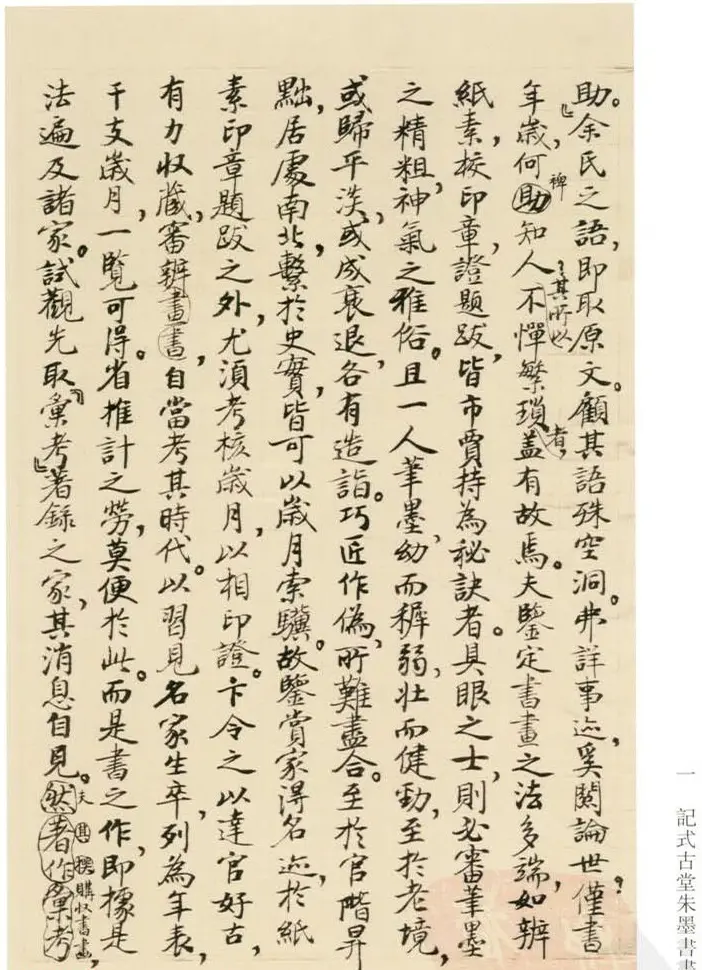 助。余氏之語，即取原文。顧其語殊空洞。弗詳事迹，奚關論世？僅書
年歲，何助裨知人？其所以不憚繁瑣者，盖有故焉。夫鑒定書畫之法多端，如辨
紙素，核印章，證題跋，皆市賈持為秘訣者。具眼之士，則必審筆墨
之精粗，神氣之雅俗。且一人筆墨，幼而穉弱，壯而健勁，至於老境，
或歸平淡，或成衰退，各有造詣。巧匠作偽，所難盡合。至於官階昇
黜，居處南北，繫於史實，皆可以歲月索驥。故鑒賞家得名迹，於紙
素印章題跋之外，尤須考核歲月，以相印證。卞令之以達官好古，
有力收藏，審辨畫書，自當考其時代。以習見名家生卒，列為年表，
干支歲月，一覽可得。省推計之勞，莫便於此。而是書之作，即據是
法遍及諸家。試觀先取「彙考」著錄之家，其消息自見。然著作彙考，
夫其撰購收書畫
一 記式古堂朱墨書畫